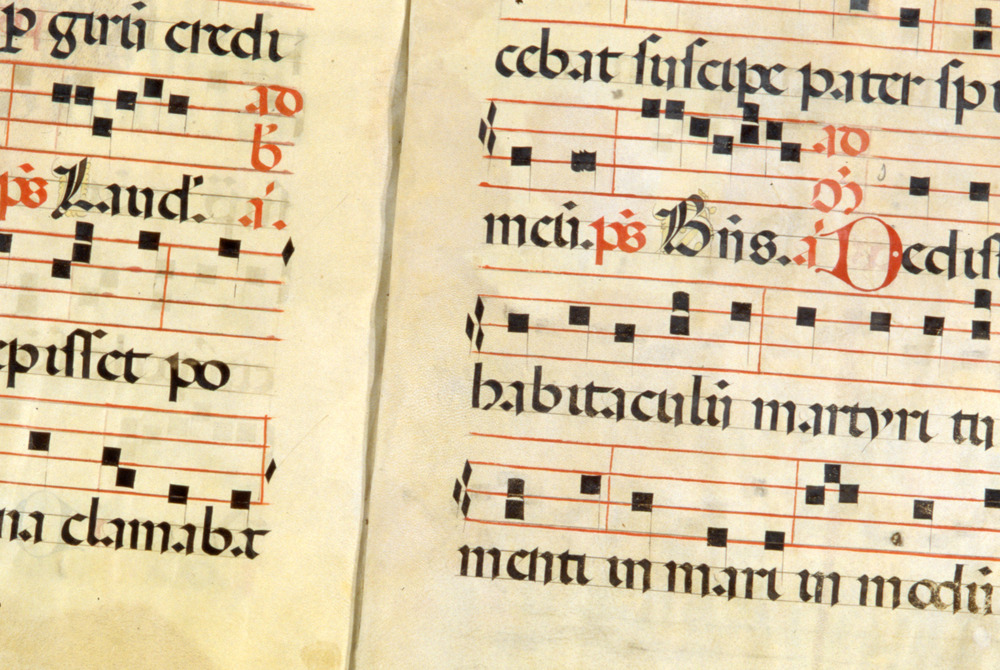 girū credi
ad
b̄
ps Laud. a.
episset po
na clamabat
cebat suscipe pater spi
ad
meū. ps Bn̄s. a Dedist
habitaculū martyri tu
menti in mari in modū